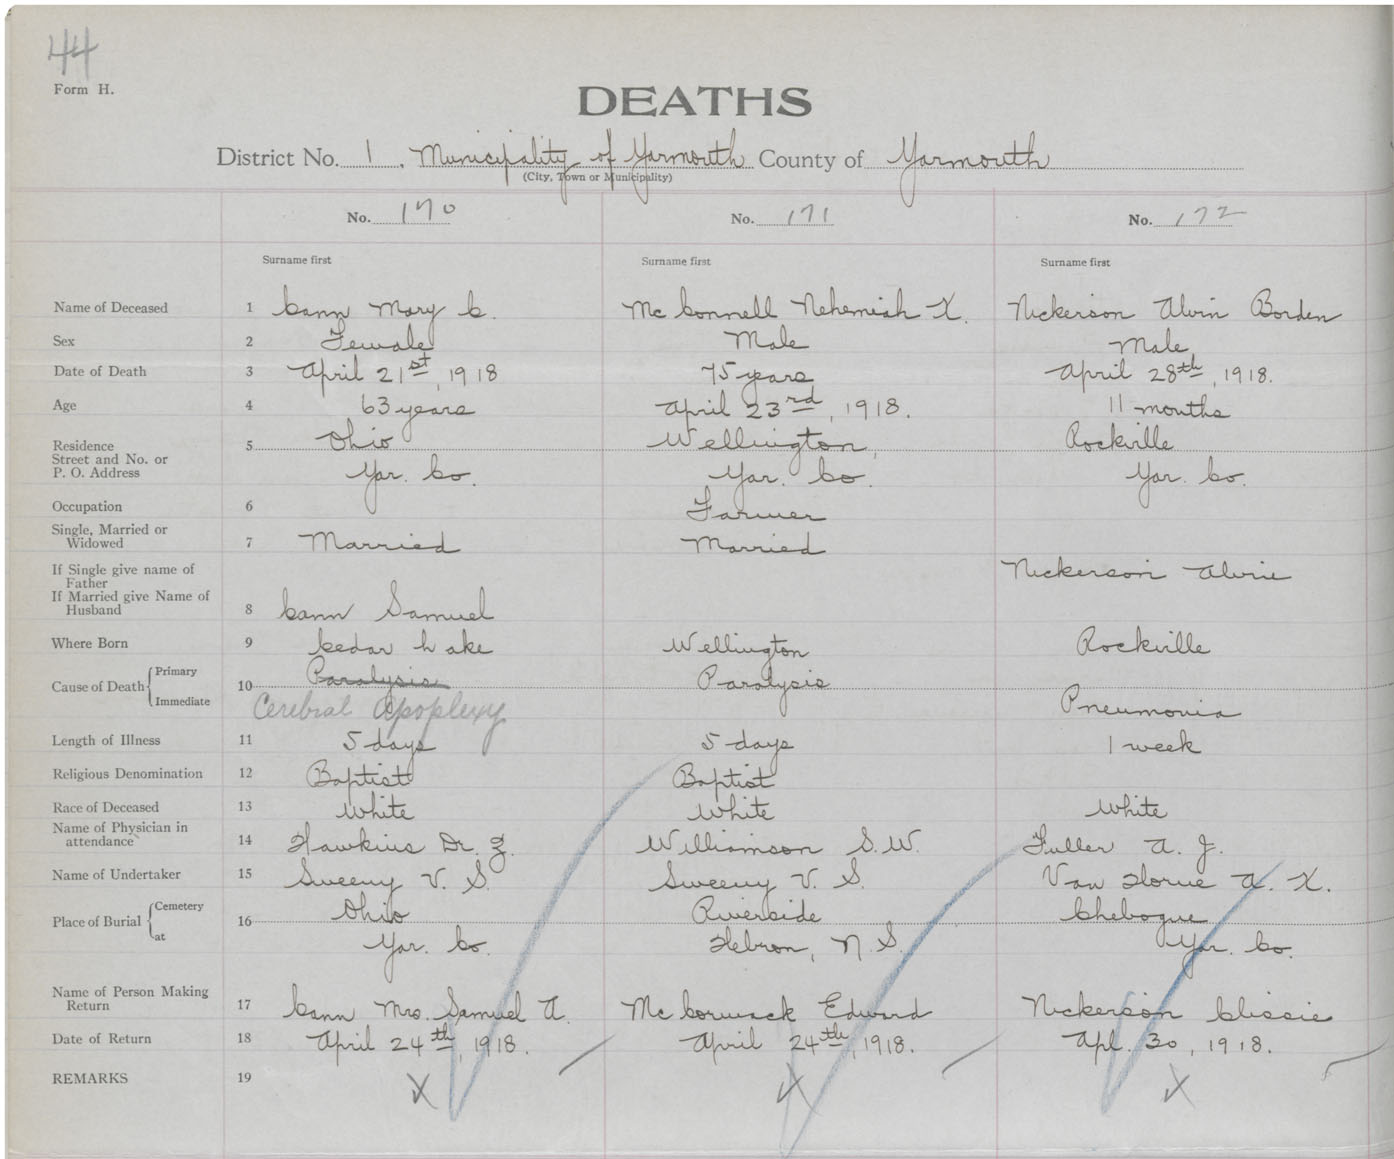 44
Form H.
DEATHS
District No. 1, Municipality of Yarmouth County of Yarmouth
(City, Town or Municipality)
No. 170 No. 171 No. 172
Surname first Surname first Surname first
Name of Deceased 1 Cann Mary C. McConnell Nehemiah K. Nickerson Alvin Borden
Sex 2 Female Male Male
Date of Death 3 April 21st, 1918 75 years April 28th, 1918.
Age 4 63 years April 23rd, 1918. 11 months
Residence 5 Ohio Wellington, Rockville
Street and No. or
P. O. Address Yar. Co. Yar. Co. Yar. Co.
Occupation 6 Farmer
Single, Married or
Widowed 7 Married Married
If Single give name of
Father Nickerson Alvin
If Married give Name of
Husband 8 Cann Samuel
Where Born 9 Cedar Lake Wellington Rockville
Cause of Death Primary 10 Paralysis Paralysis
Immediate Cerebral Apoplexy Pneumonia
Length of Illness 11 5 days 5 days 1 week
Religious Denomination 12 Baptist Baptist
Race of Deceased 13 White White White
Name of Physician in
attendance 14 Hawkins Dr. Z. Williamson S. W. Fuller A. J.
Name of Undertaker 15 Sweeny V. S. Sweeny V. S. Van Horne A. K.
Place of Burial Cemetery 16 Ohio Riverside Chebogue
at Yar. Co. Hebron, N. S. Yar. Co.
Name of Person Making
Return 17 Cann Mrs. Samuel A. McCormack Edward Nickerson Clissie
Date of Return 18 April 24th, 1918. April 24th, 1918. Apl. 30, 1918.
REMARKS 19 X X X